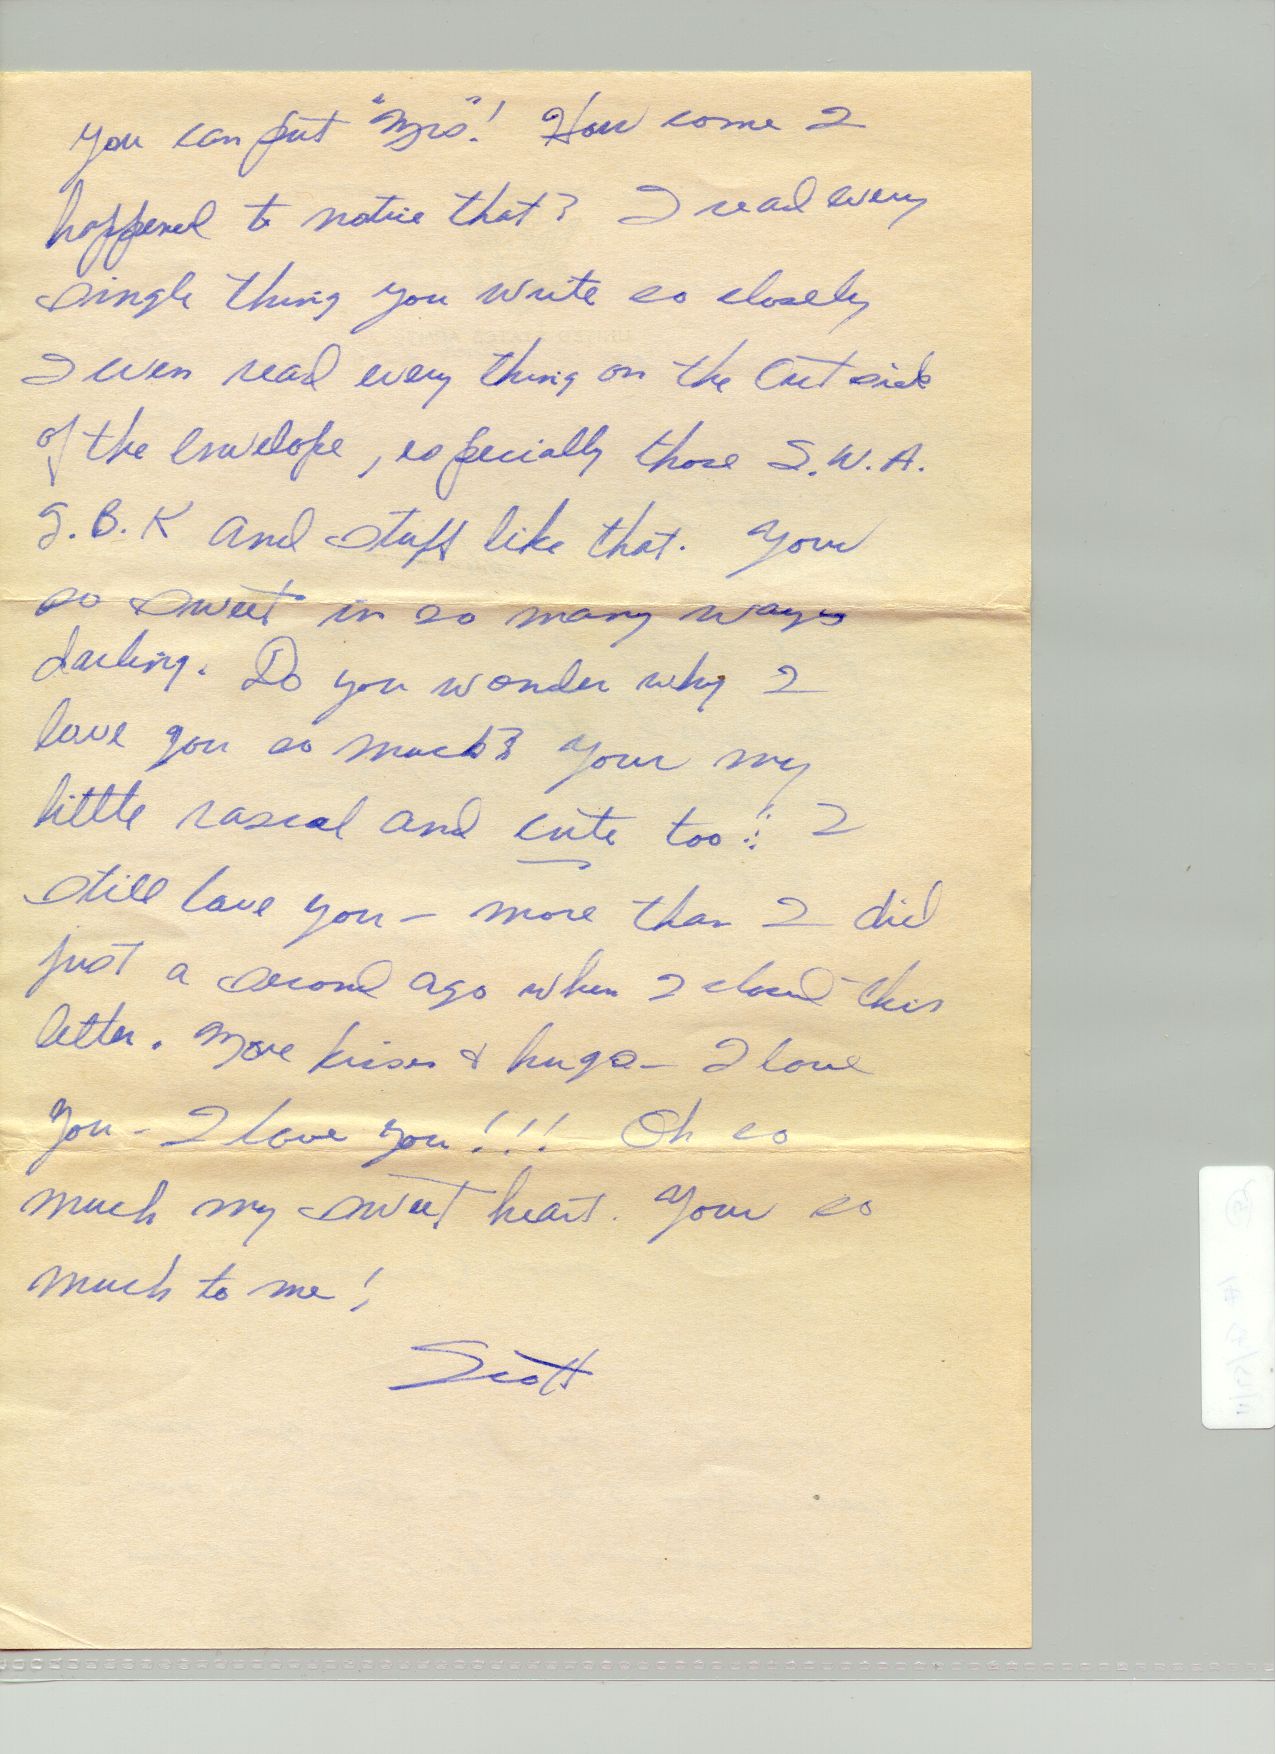 you can put "Mrs"! How come I
happened to notice that? I read every
single thing you write so closely
I even read every thing on the Out side
of the envelope, especially those S.W.A.
S.B.K and stuff like that. Your
so sweet in so many ways
darling. Do you wonder why I
love you so much? Your my
little rascal and cute too!! I
still love you - more than I did
just a second ago when I closed this
letter. More kisses & hugs - I love
you - I love you!!! Oh so
much my sweet heart. Your so
much to me!
Scott